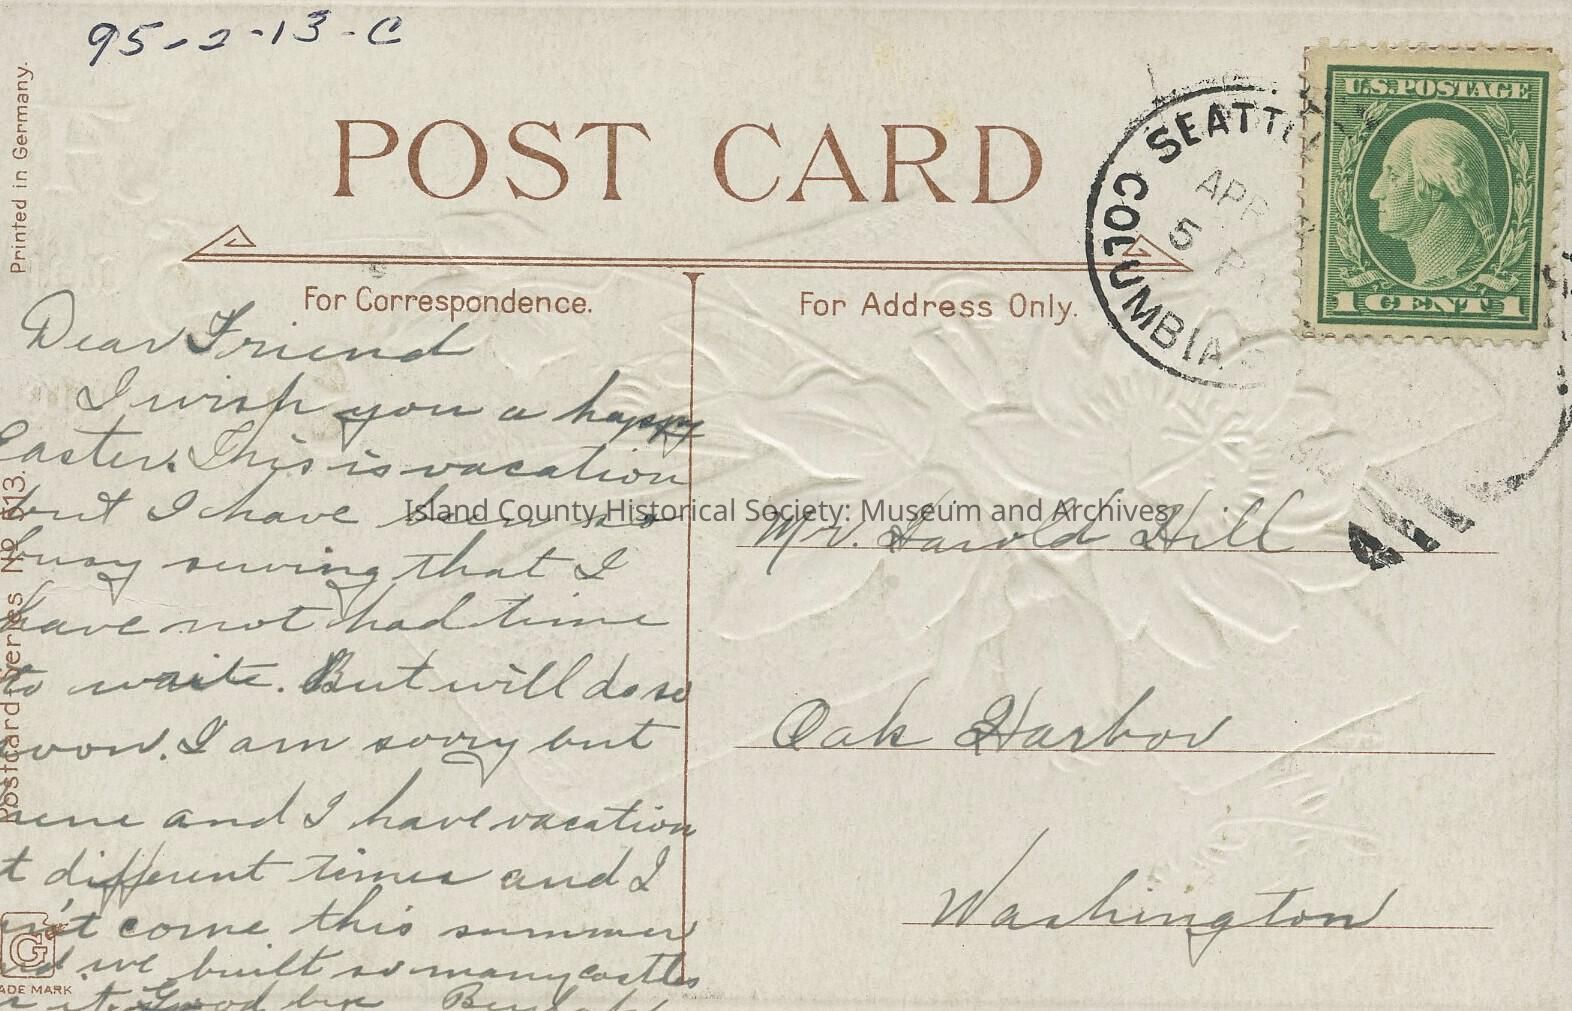 95-2-13-C
Printed in Germany.
POST CARD
For Correspondence.
For Address Only.
SEATTLE
COLUMBIA
APR
5 P
U.S. POSTAGE
1 CENT 1
Dear Friend
I wish you a happy
Easter. This is vacation
but I have been so
busy sewing that I
have not had time
to write. But will do so
soon. I am sorry but
and I have vacation
t different times and I
n't come this summer
nd we built so many castles
it. Good bye Beulah
Island County Historical Society: Museum and Archives
Mr. Harold Hill
Oak Harbor
Washington
Postcard Series No. 513.
G
ADE MARK